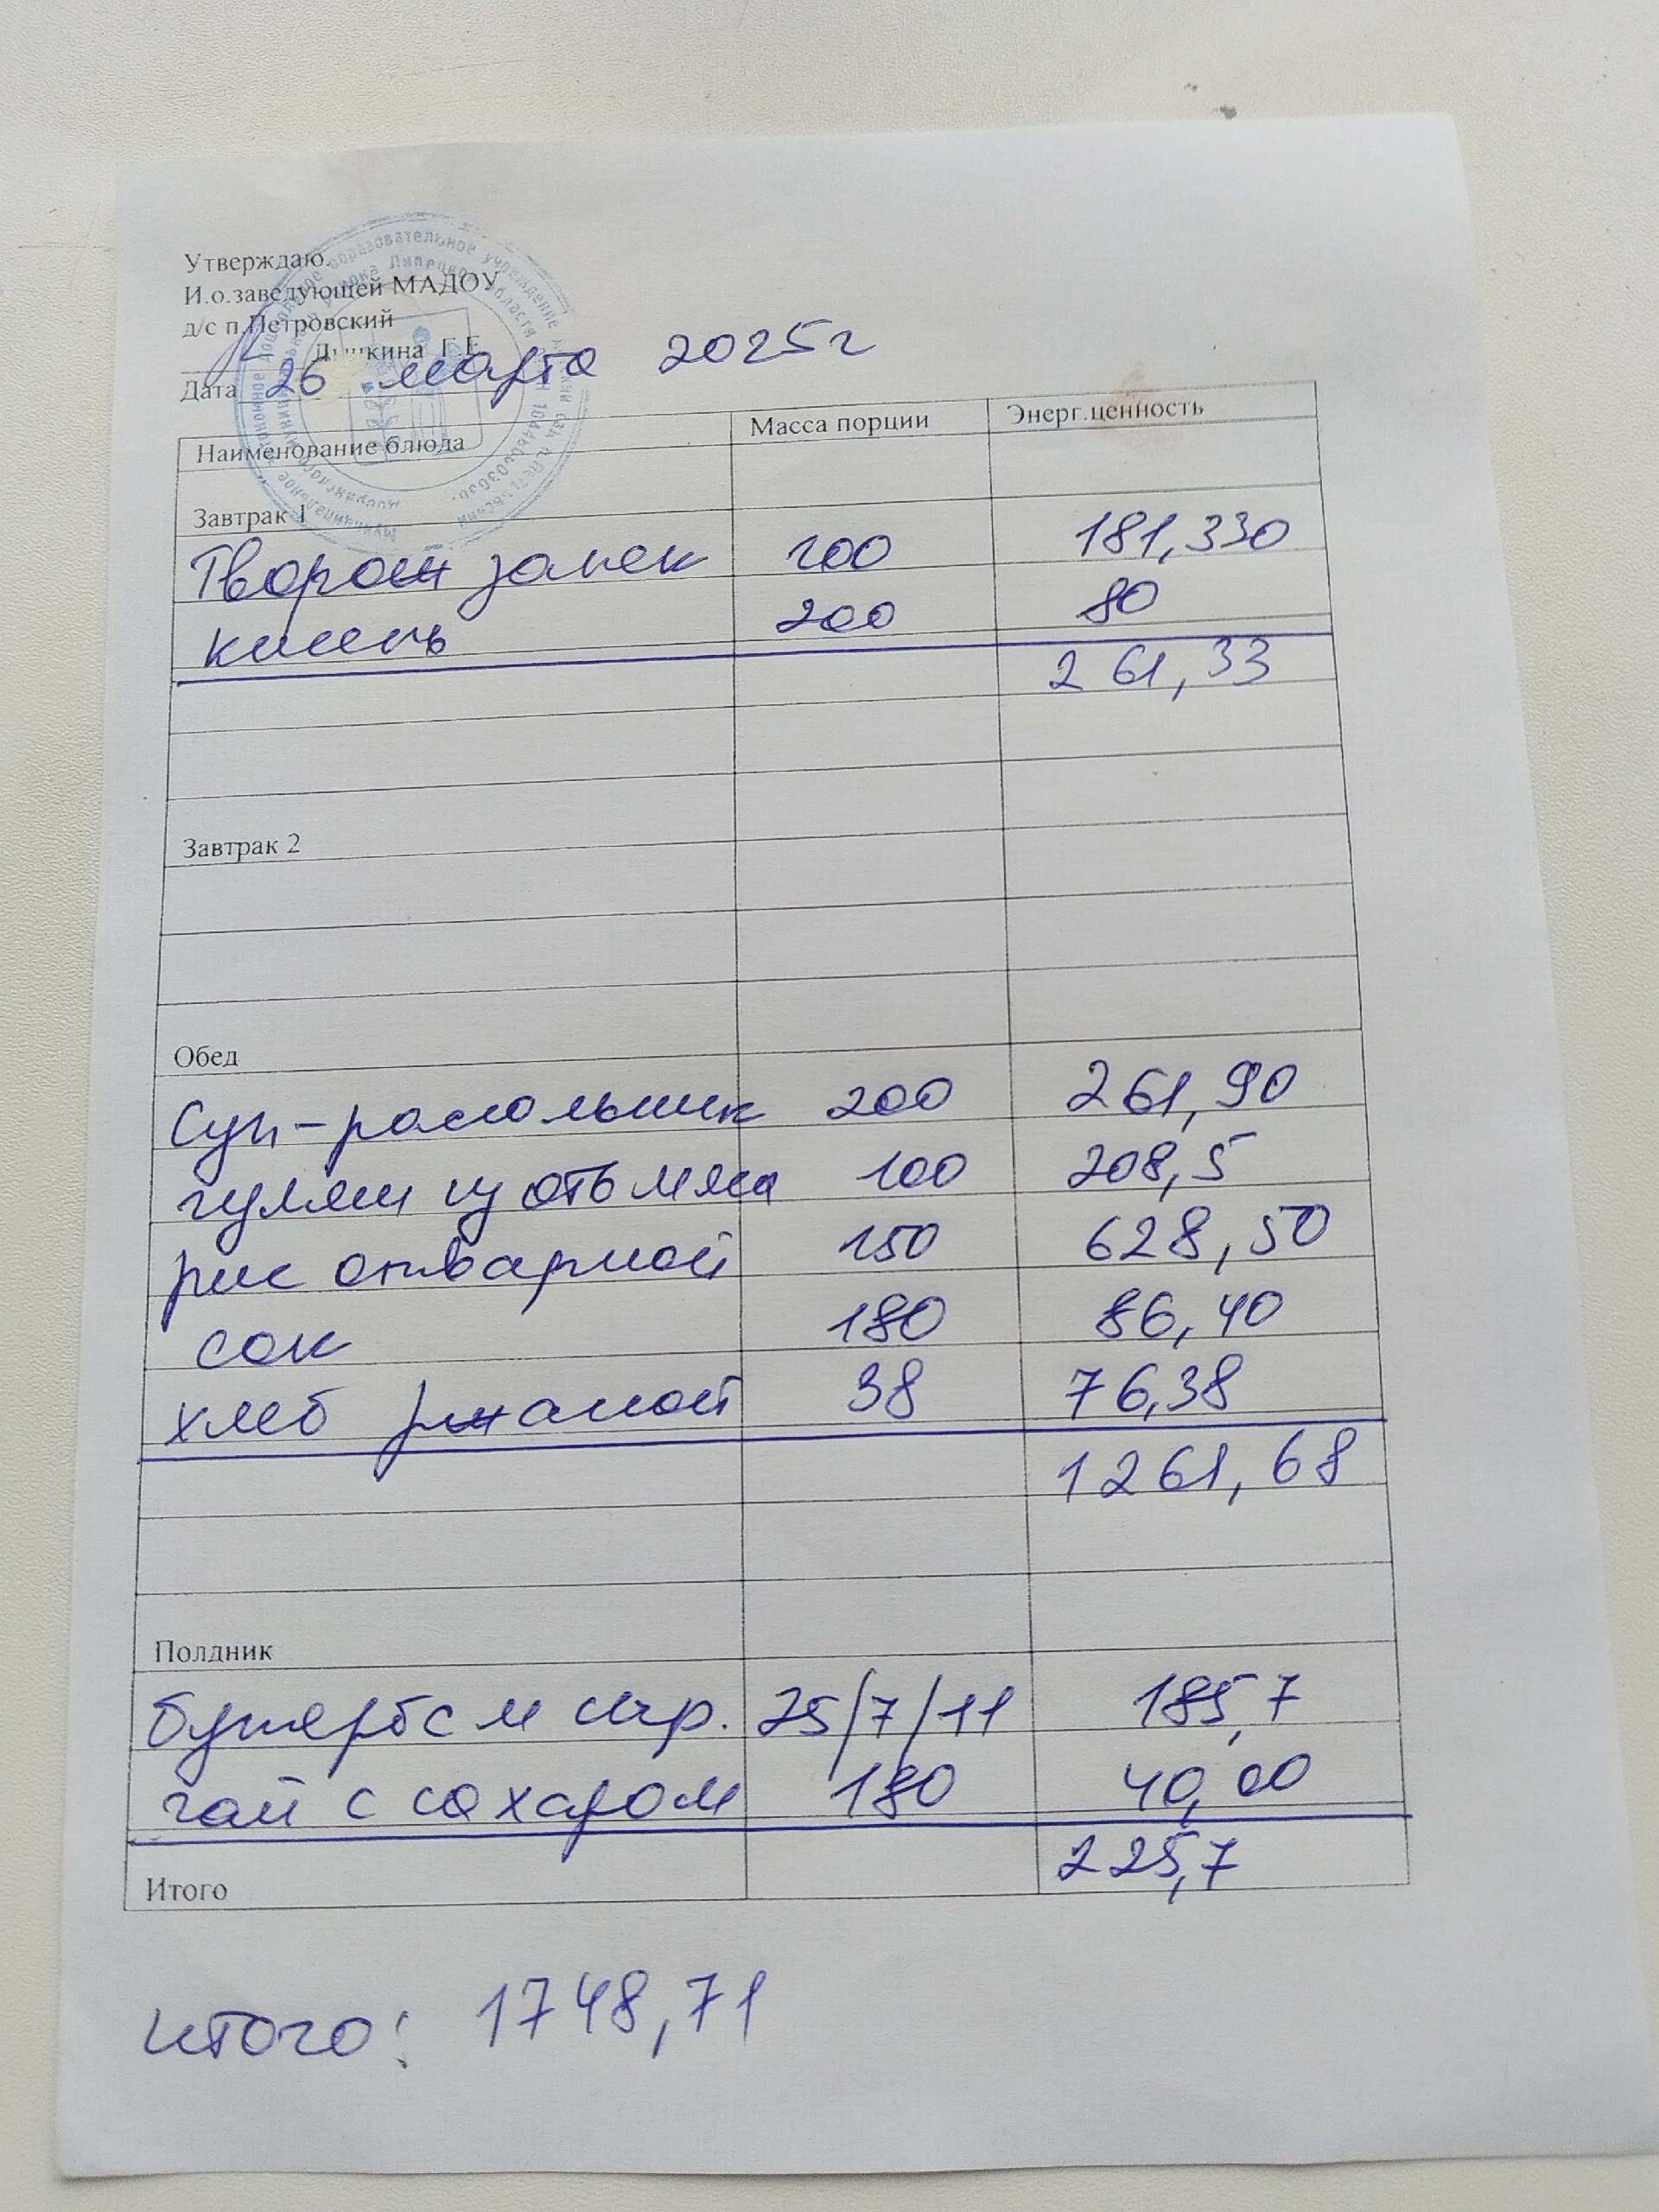 Утверждаю.
И.о.заведующей МАДОУ
д/с п.Петровский
Г.Е.
Дата 26 марта 2025г
Наименование блюда Масса порции Энерг.ценность
Завтрак 1
Творож запек 200 181,330
кисель 200 80
261,33
Завтрак 2
Обед
Суп-рассольник 200 261,90
гуляш из отв мяса 100 208,5
рис отварной 150 628,50
сок 180 86,40
хлеб ржаной 38 76,38
1261,68
Полдник
бутерб с м сыр. 25/7/11 185,7
чай с сахаром 180 40,00
Итого 225,7
итого: 1748,71